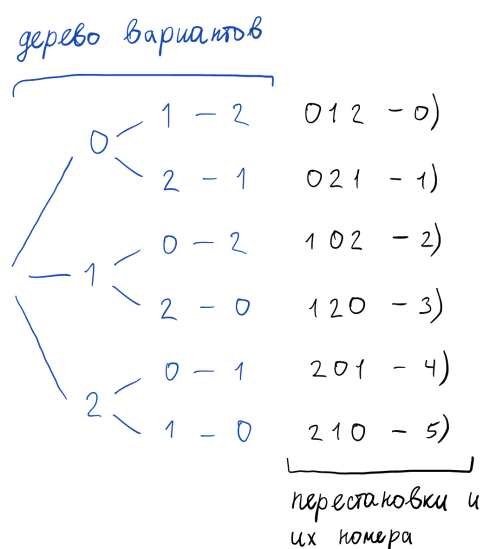 дерево вариантов
0 1 – 2 012 – 0)
2 – 1 021 – 1)
1 0 – 2 102 – 2)
2 – 0 120 – 3)
2 0 – 1 201 – 4)
1 – 0 210 – 5)
перестановки и
их номера